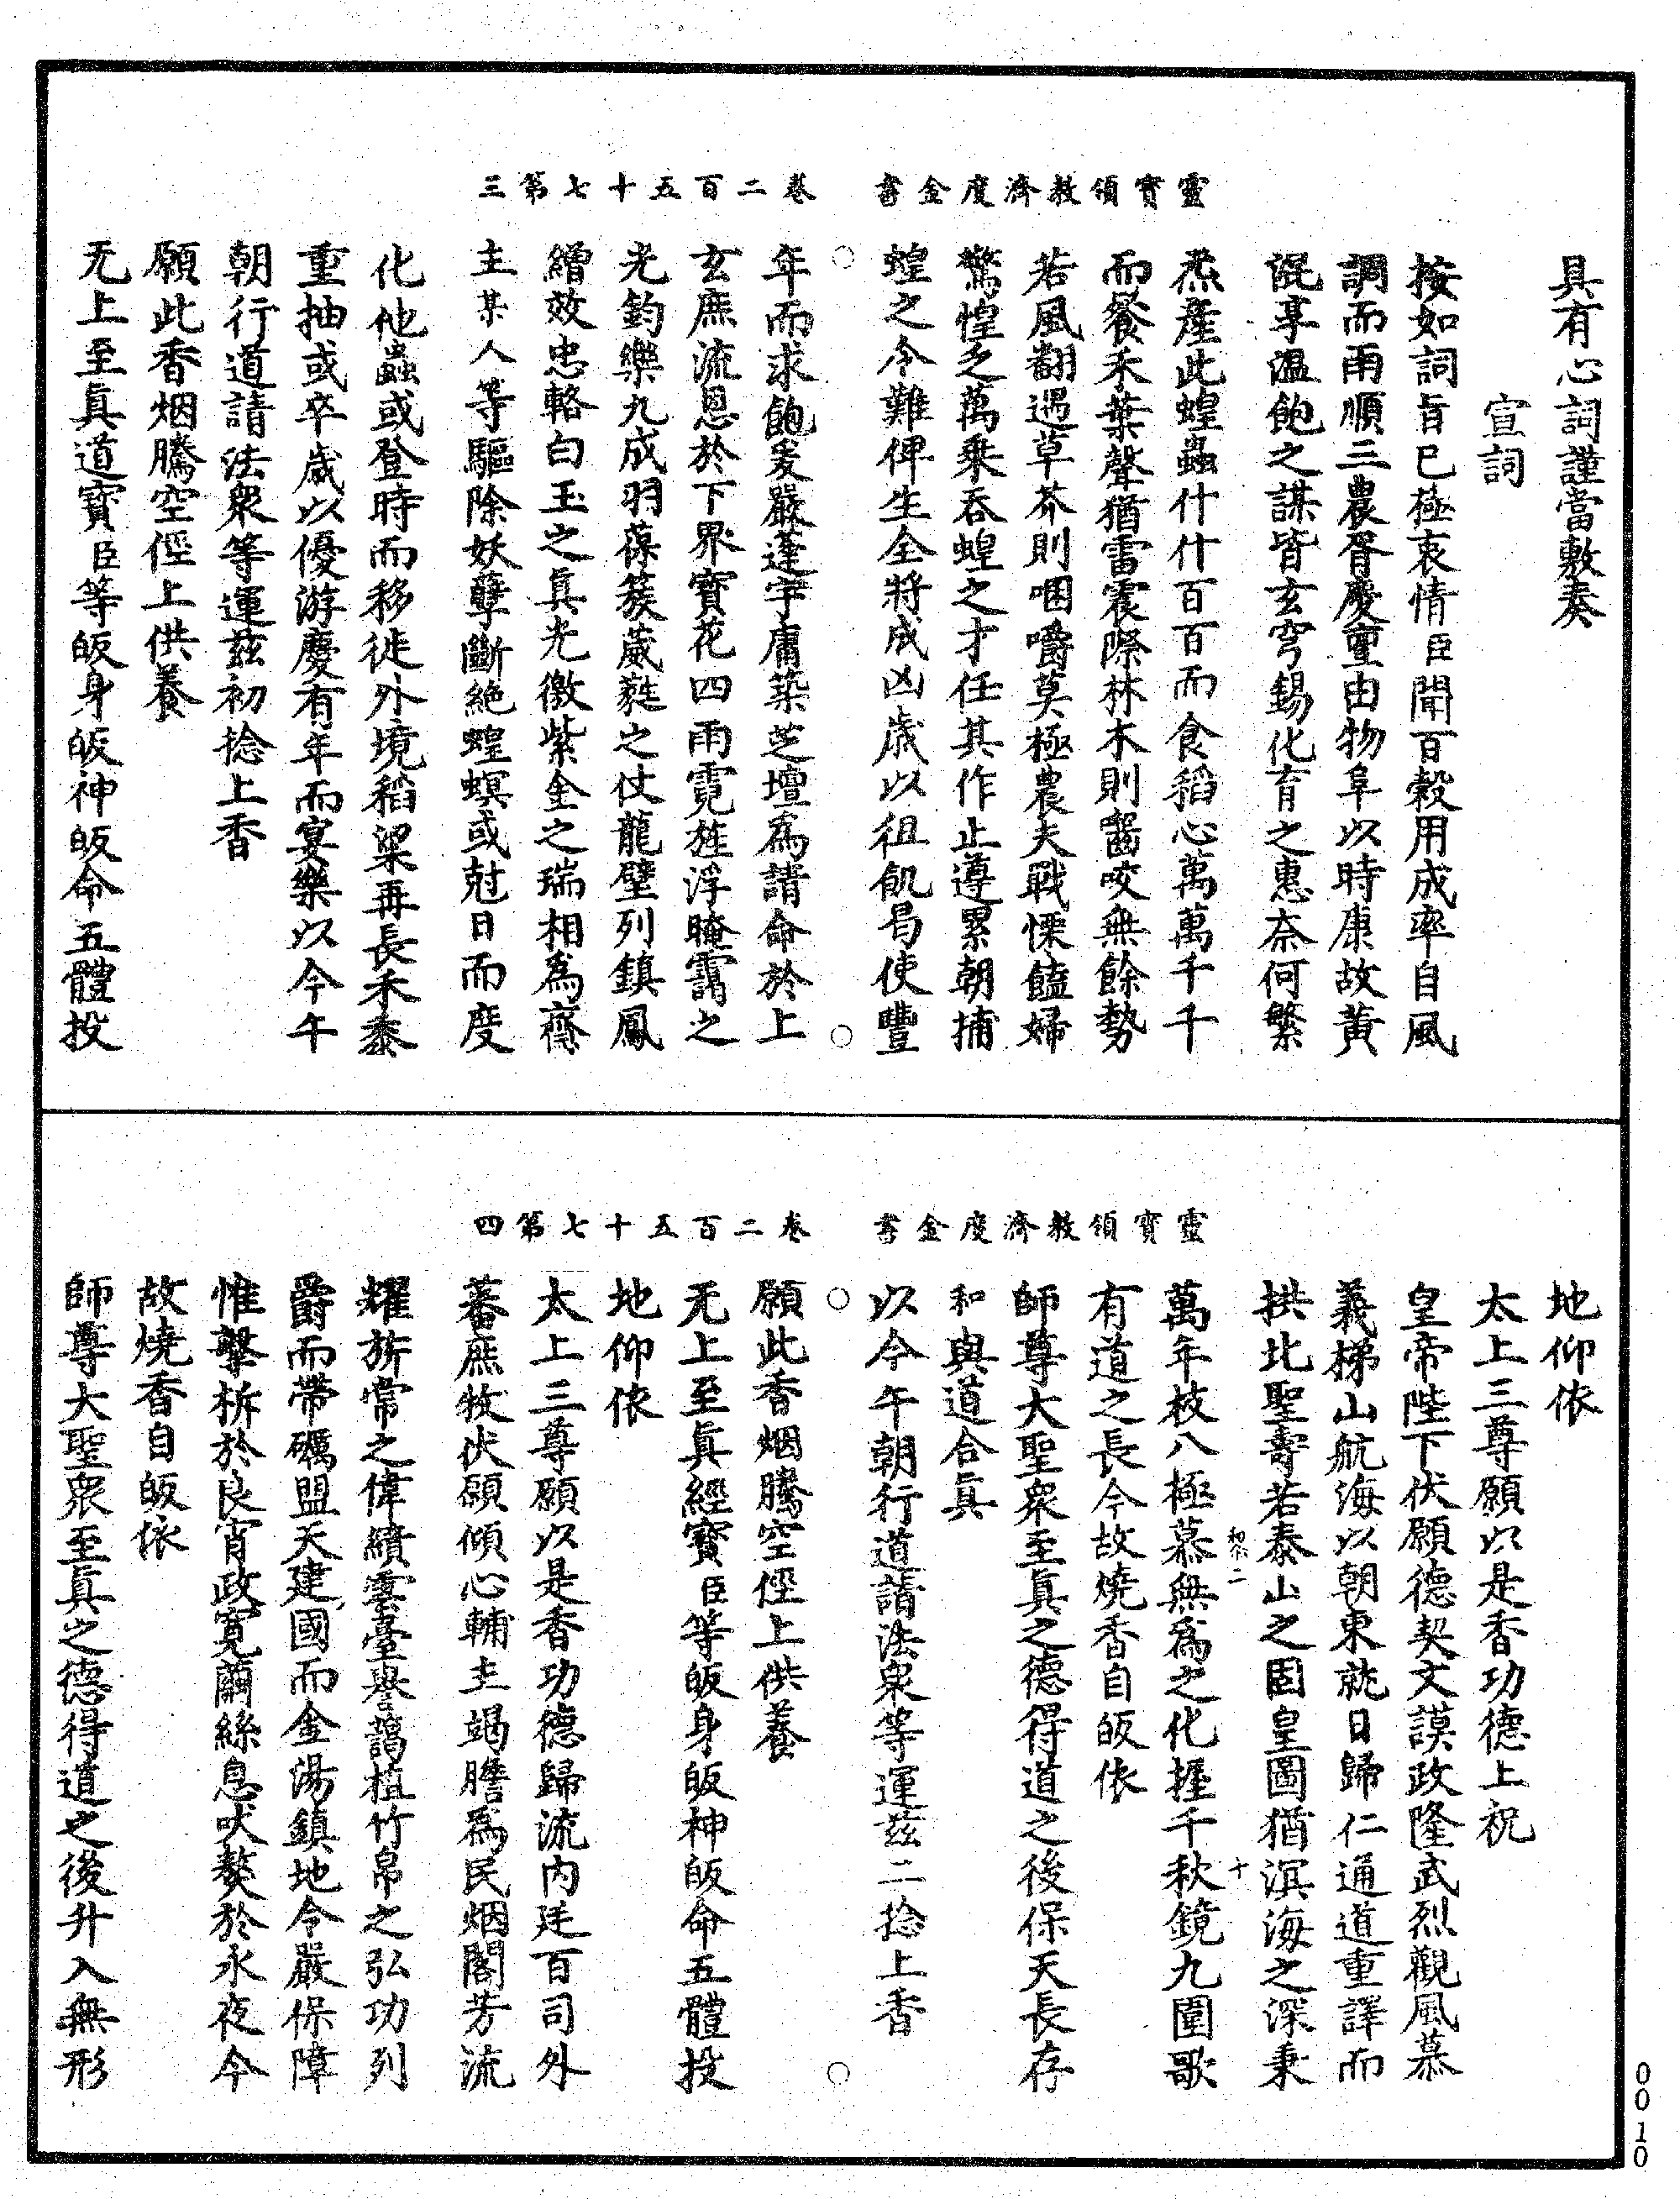 靈寶領教濟度金書　卷二百五十七第三
具有心詞謹當敷奏
宣詞
按如詞旨巳極衷情臣聞百穀用成率自風
調而雨順三農胥慶亶由物阜以時康故黃
氓享溫飽之謀皆玄穹錫化育之惠柰何繁
炁產此蝗蟲什什百百而食稻心萬萬千千
而餐禾葉聲猶雷震際林木則齧咬無餘勢
若風翻遇草芥則咽嚼莫極農夫戰慄饁婦
驚惶乏萬乗吞蝗之才任其作止遵累朝捕
蝗之令難俾生全將成凶歲以徂飢曷使豐
年而求飽爰嚴蓬宇庸築芝壇為請命於上
玄庶流恩於下界寶花四雨霓旌浮晻靄之
光鈞樂九成羽葆簇葳蕤之仗龍璧列鎮鳳
繒效忠輅白玉之真光徼紫金之瑞相為齋
主某人等驅除妖孽斷絶蝗螟或尅日而度
化他蟲或登時而移徙外境稻粱再長禾黍
重抽或卒歲以優游慶有年而宴樂以今午
朝行道請法衆等運茲初捻上香
願此香烟騰空徑上供養
无上至真道寶臣等皈身皈神皈命五體投
靈寶領教濟度金書　卷二百五十七第四
地仰依
太上三尊願以是香功德上祝
皇帝陛下伏願德契文謨政隆武烈觀風慕
義梯山航海以朝東就日歸仁通道重譯而
拱北聖壽若泰山之固皇圖猶溟海之深秉
萬年枝八極慕無為之化握千秋鏡九圍歌
有道之長今故燒香自皈依
師尊大聖衆至真之德得道之後保天長存
和與道合真
以今午朝行道請法衆等運茲二捻上香
願此香烟騰空徑上供養
无上至真經寶臣等皈身皈神皈命五體投
地仰依
太上三尊願以是香功德歸流內廷百司外
蕃庶牧伏願傾心輔主竭膽為民烟閣芳流
耀旂常之偉績雲臺譽藹植竹帛之弘功列
爵而帶礪盟天建國而金湯鎮地令嚴保障
惟擊柝於良宵政寬繭絲息吠獒於永夜今
故燒香自皈依
師尊大聖衆至真之德得道之後升入無形
0010